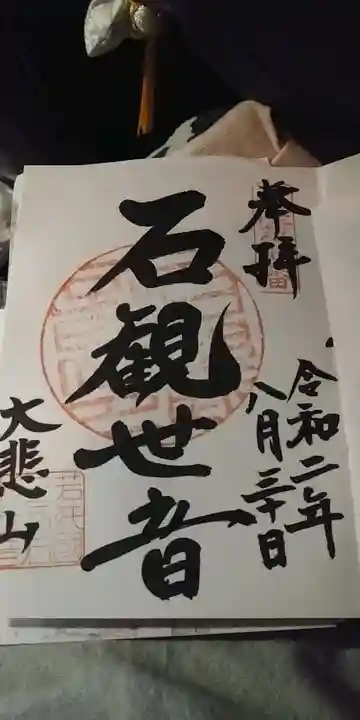 奉拝
令和二年
八月三十日
石観世音
大悲山